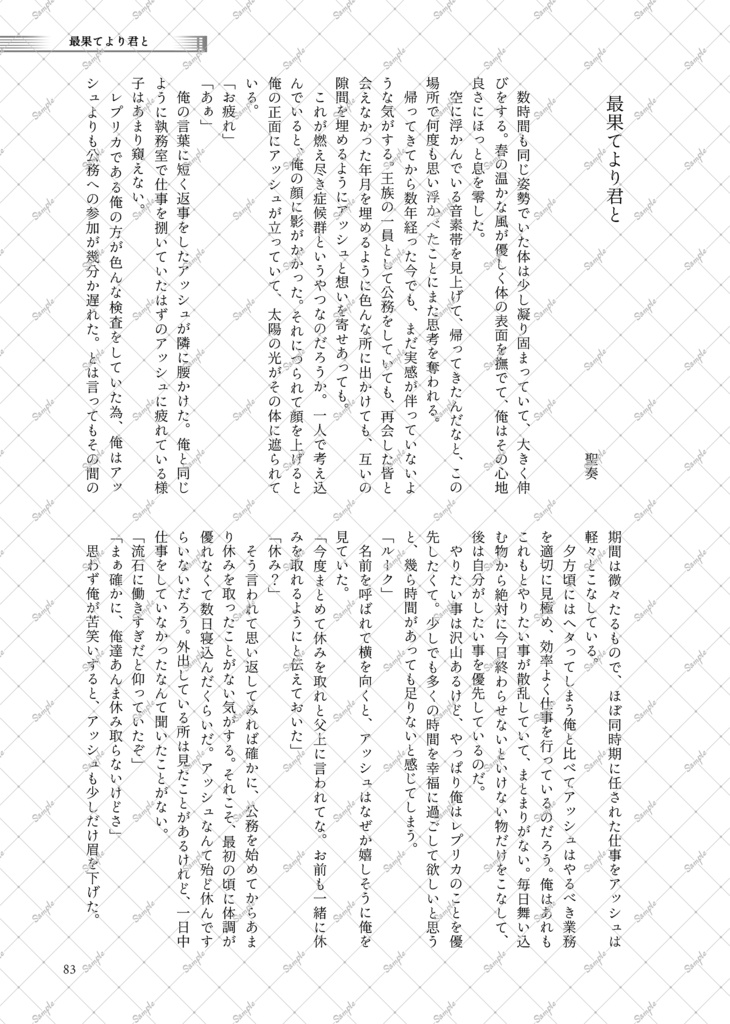 最果てより君と
最果てより君と
聖奏
数時間も同じ姿勢でいた体は少し凝り固まっていて、大きく伸
びをする。春の温かな風が優しく体の表面を撫でて、俺はその心地
良さにほっと息を零した。
空に浮かんでいる音素帯を見上げて、帰ってきたんだなと、この
場所で何度も思い浮かべたことにまた思考を奪われる。
帰ってきてから数年経った今でも、まだ実感が伴っていないよ
うな気がする。王族の一員として公務をしていても、再会した皆と
会えなかった年月を埋めるように色んな所に出かけても、互いの
隙間を埋めるようにアッシュと想いを寄せあっても。
これが燃え尽き症候群というやつなのだろうか。一人で考え込
んでいると、俺の顔に影がかかった。それにつられて顔を上げると
俺の正面にアッシュが立っていて、太陽の光がその体に遮られて
いる。
「お疲れ」
「あぁ」
俺の言葉に短く返事をしたアッシュが隣に腰かけた。俺と同じ
ように執務室で仕事を捌いていたはずのアッシュに疲れている様
子はあまり窺えない。
レプリカである俺の方が色んな検査をしていた為、俺はアッ
シュよりも公務への参加が幾分か遅れた。とは言ってもその間の
期間は微々たるもので、ほぼ同時期に任された仕事をアッシュは
軽々とこなしている。
夕方頃にはヘタってしまう俺と比べてアッシュはやるべき業務
を適切に見極め、効率よく仕事を行っているのだろう。俺はあれも
これもとやりたい事が散乱していて、まとまりがない。毎日舞い込
む物から絶対に今日終わらせないといけない物だけをこなして、
後は自分がしたい事を優先しているのだ。
やりたい事は沢山あるけど、やっぱり俺はレプリカのことを優
先したくて。少しでも多くの時間を幸福に過ごして欲しいと思う
と、幾ら時間があっても足りないと感じてしまう。
「ルーク」
名前を呼ばれて横を向くと、アッシュはなぜか嬉しそうに俺を
見ていた。
「今度まとめて休みを取れと父上に言われてな。お前も一緒に休
みを取れるようにと伝えておいた」
「休み？」
そう言われて思い返してみれば確かに、公務を始めてからあま
り休みを取ったことがない気がする。それこそ、最初の頃に体調が
優れなくて数日寝込んだくらいだ。アッシュなんて殆ど休んです
らいないだろう。外出している所は見たことがあるけれど、一日中
仕事をしていなかったなんて聞いたことがない。
「流石に働きすぎだと仰っていたぞ」
「まぁ確かに、俺達あんま休み取らないけどさ」
思わず俺が苦笑いすると、アッシュも少しだけ眉を下げた。
83
Sample